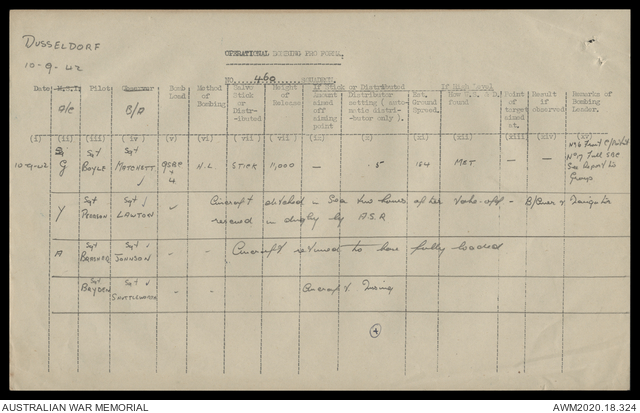 DUSSELDORF
10-9-42
OPERATIONAL BOMBING PRO FORMA.
NO. 460 SQUADRON.
Date A/C Pilot Observer B/A Bomb Load Method of Bombing Salvo Stick or Distr-ibuted Height of Release If Stick or Distributed Amount aimed off aiming point Distributor setting (auto matic distri-butor only). Est. Ground Speed. If High Level How found Point of target aimed at. Result if observed Remarks of Bombing Leader.
(i) (ii) (iii) (iv) (v) (vi) (vii) (viii) (ix) (x) (xi) (xii) (xiii) (xiv) (xv)
10-9-42 G Sgt BOYLE Sgt 4 N.L. STICK 11,000 — .5 184 MET — — See Report to Group
Y Sgt PEARSON Sgt LAWTON Aircraft ditched in Sea two hours after take-off - B/Aimer & Navigator
rescued in dinghy by A.S.R
A Sgt Sgt JOHNSON - - Aircraft returned to base fully loaded
Sgt BAYDEN Sgt SHUTTLEWORTH - - Aircraft Missing
4
AUSTRALIAN WAR MEMORIAL
AWM2020.18.324